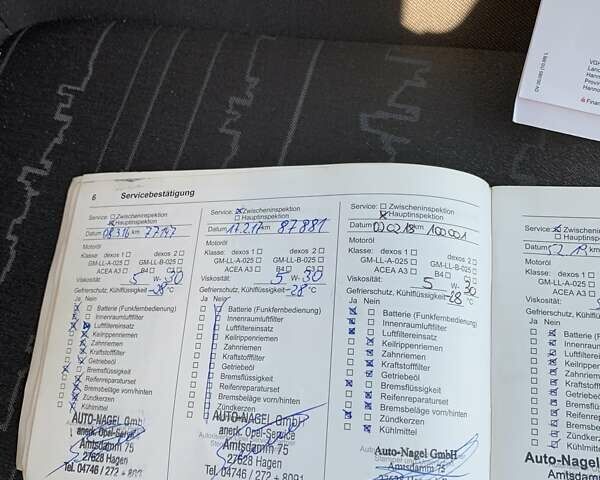 6 Servicebestätigung
Service: Zwischeninspektion
Hauptinspektion
Datum 08.3.16 km 77747
Motoröl
Klasse: dexos 1 dexos 2
GM-LL-A-025 GM-LL-B-025
ACEA A3 B4 C3
Viskosität: 5 W- 30
Gefrierschutz, Kühlflüssigkeit -28 °C
Ja Nein
Batterie (Funkfernbedienung)
Innenraumluftfilter
Luftfiltereinsatz
Keilrippenriemen
Zahnriemen
Kraftstofffilter
Getriebeöl
Bremsflüssigkeit
Reifenreparaturset
Bremsbeläge vorn/hinten
Zündkerzen
Kühlmittel
AUTO-NAGEL GmbH
anerk. Opel-Service
Amtsdamm 75
27628 Hagen
Tel. 04746 / 272 +
Service: Zwischeninspektion
Hauptinspektion
Datum 14.2.17 km 87881
Motoröl
Klasse: dexos 1 dexos 2
GM-LL-A-025 GM-LL-B-025
ACEA A3 B4 C3
Viskosität: 5 W- 30
Gefrierschutz, Kühlflüssigkeit -28 °C
Ja Nein
Batterie (Funkfernbedienung)
Innenraumluftfilter
Luftfiltereinsatz
Keilrippenriemen
Zahnriemen
Kraftstofffilter
Getriebeöl
Bremsflüssigkeit
Reifenreparaturset
Bremsbeläge vorn/hinten
Zündkerzen
Kühlmittel
AUTO-NAGEL GmbH
anerk. Opel-Service
Amtsdamm 75
27628 Hagen
Tel. 04746 / 272 +
Service: Zwischeninspektion
Hauptinspektion
Datum 02.02.18 km 100.001
Motoröl
Klasse: dexos 1 dexos 2
GM-LL-A-025 GM-LL-B-025
ACEA A3 B4 C3
Viskosität: 5 W- 30
Gefrierschutz, Kühlflüssigkeit -28 °C
Ja Nein
Batterie (Funkfernbedienung)
Innenraumluftfilter
Luftfiltereinsatz
Keilrippenriemen
Zahnriemen
Kraftstofffilter
Getriebeöl
Bremsflüssigkeit
Reifenreparaturset
Bremsbeläge vorn/hinten
Zündkerzen
Kühlmittel
Auto-Nagel GmbH
Amtsdamm 75
27628 Hagen
Service:
Datum
Motoröl
Klasse: dexos 1
GM-LL-A-025
ACEA A3
Viskosität:
Gefrierschutz, Kühlflüssig
Ja Nein
Batterie (Funkfern
Innenraumluftfilte
Luftfiltereinsatz
Keilrippenriemen
Zahnriemen
Kraftstofffilter
Getriebeöl
Bremsflüssigkeit
Reifenreparaturs
Bremsbeläge vo
Zündkerzen
Kühlmittel
Auto-Nagel
Amtsdamm